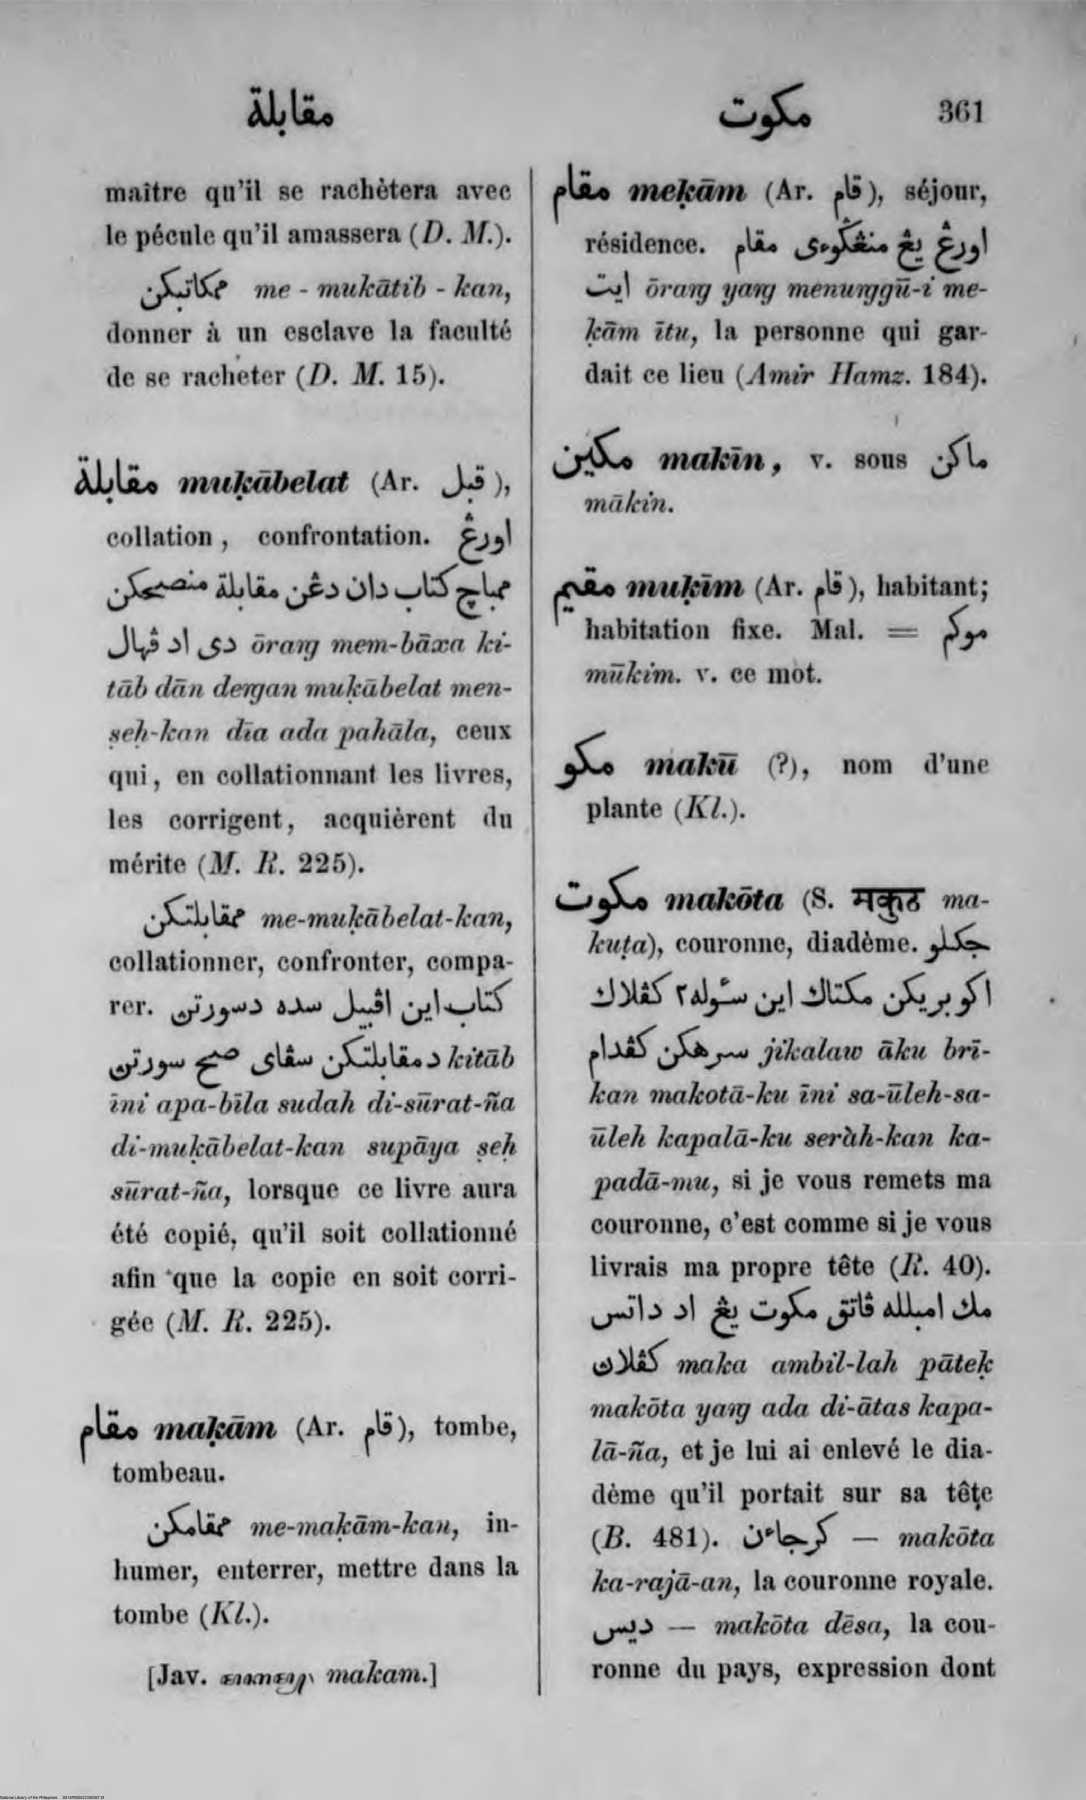 مقابلة
مكوت 361
maître qu'il se rachètera avec
le pécule qu'il amassera (D. M.).
مكاتبكن me - mukātib - kan,
donner à un esclave la faculté
de se racheter (D. M. 15).
مقابلة muḳābelat (Ar. قبل),
collation, confrontation. اورڠ
ممباچ كتاب دان دڠن مقابلة منصحكن
دى اد ڤهال ōrang mem-bāxa ki-
tāb dān dengan muḳābelat men-
ṣeḥ-kan dīa ada pahāla, ceux
qui, en collationnant les livres,
les corrigent, acquièrent du
mérite (M. R. 225).
ممقابلتكن me-muḳābelat-kan,
collationner, confronter, compa-
rer. كتاب اين اڤبيل سده دسورتڽ
دمقابلتكن سڤاى صح سورتڽ kitāb
īni apa-bīla sudah di-sūrat-ña
di-muḳābelat-kan supāya ṣeḥ
sūrat-ña, lorsque ce livre aura
été copié, qu'il soit collationné
afin que la copie en soit corri-
gée (M. R. 225).
مقام maḳām (Ar. قام), tombe,
tombeau.
ممقامكن me-maḳām-kan, in-
humer, enterrer, mettre dans la
tombe (Kl.).
[Jav. makam.]
مقام meḳām (Ar. قام), séjour,
résidence. اورڠ يڠ منڠݢوءى مقام
ايت ōrang yang menunggū-i me-
ḳām ītu, la personne qui gar-
dait ce lieu (Amir Hamz. 184).
مكين makīn, v. sous ماكن
mākin.
مقيم muḳīm (Ar. قام), habitant;
habitation fixe. Mal. = موكم
mūkim. v. ce mot.
مكو makū (?), nom d'une
plante (Kl.).
مكوت makōta (S. मकुठ ma-
kuṭa), couronne, diadème. جكلو
اكو بريكن مكتاك اين سئوله٢ كڤلاك
سرهكن كڤدام jikalaw āku brī-
kan makotā-ku īni sa-ūleh-sa-
ūleh kapalā-ku seràh-kan ka-
padā-mu, si je vous remets ma
couronne, c'est comme si je vous
livrais ma propre tête (R. 40).
مك امبلله ڤاتق مكوت يڠ اد داتس
كڤلاڽ maka ambil-lah pāteḳ
makōta yang ada di-ātas kapa-
lā-ña, et je lui ai enlevé le dia-
dème qu'il portait sur sa tête
(B. 481). كرجاءن — makōta
ka-rajā-an, la couronne royale.
ديس — makōta dēsa, la cou-
ronne du pays, expression dont